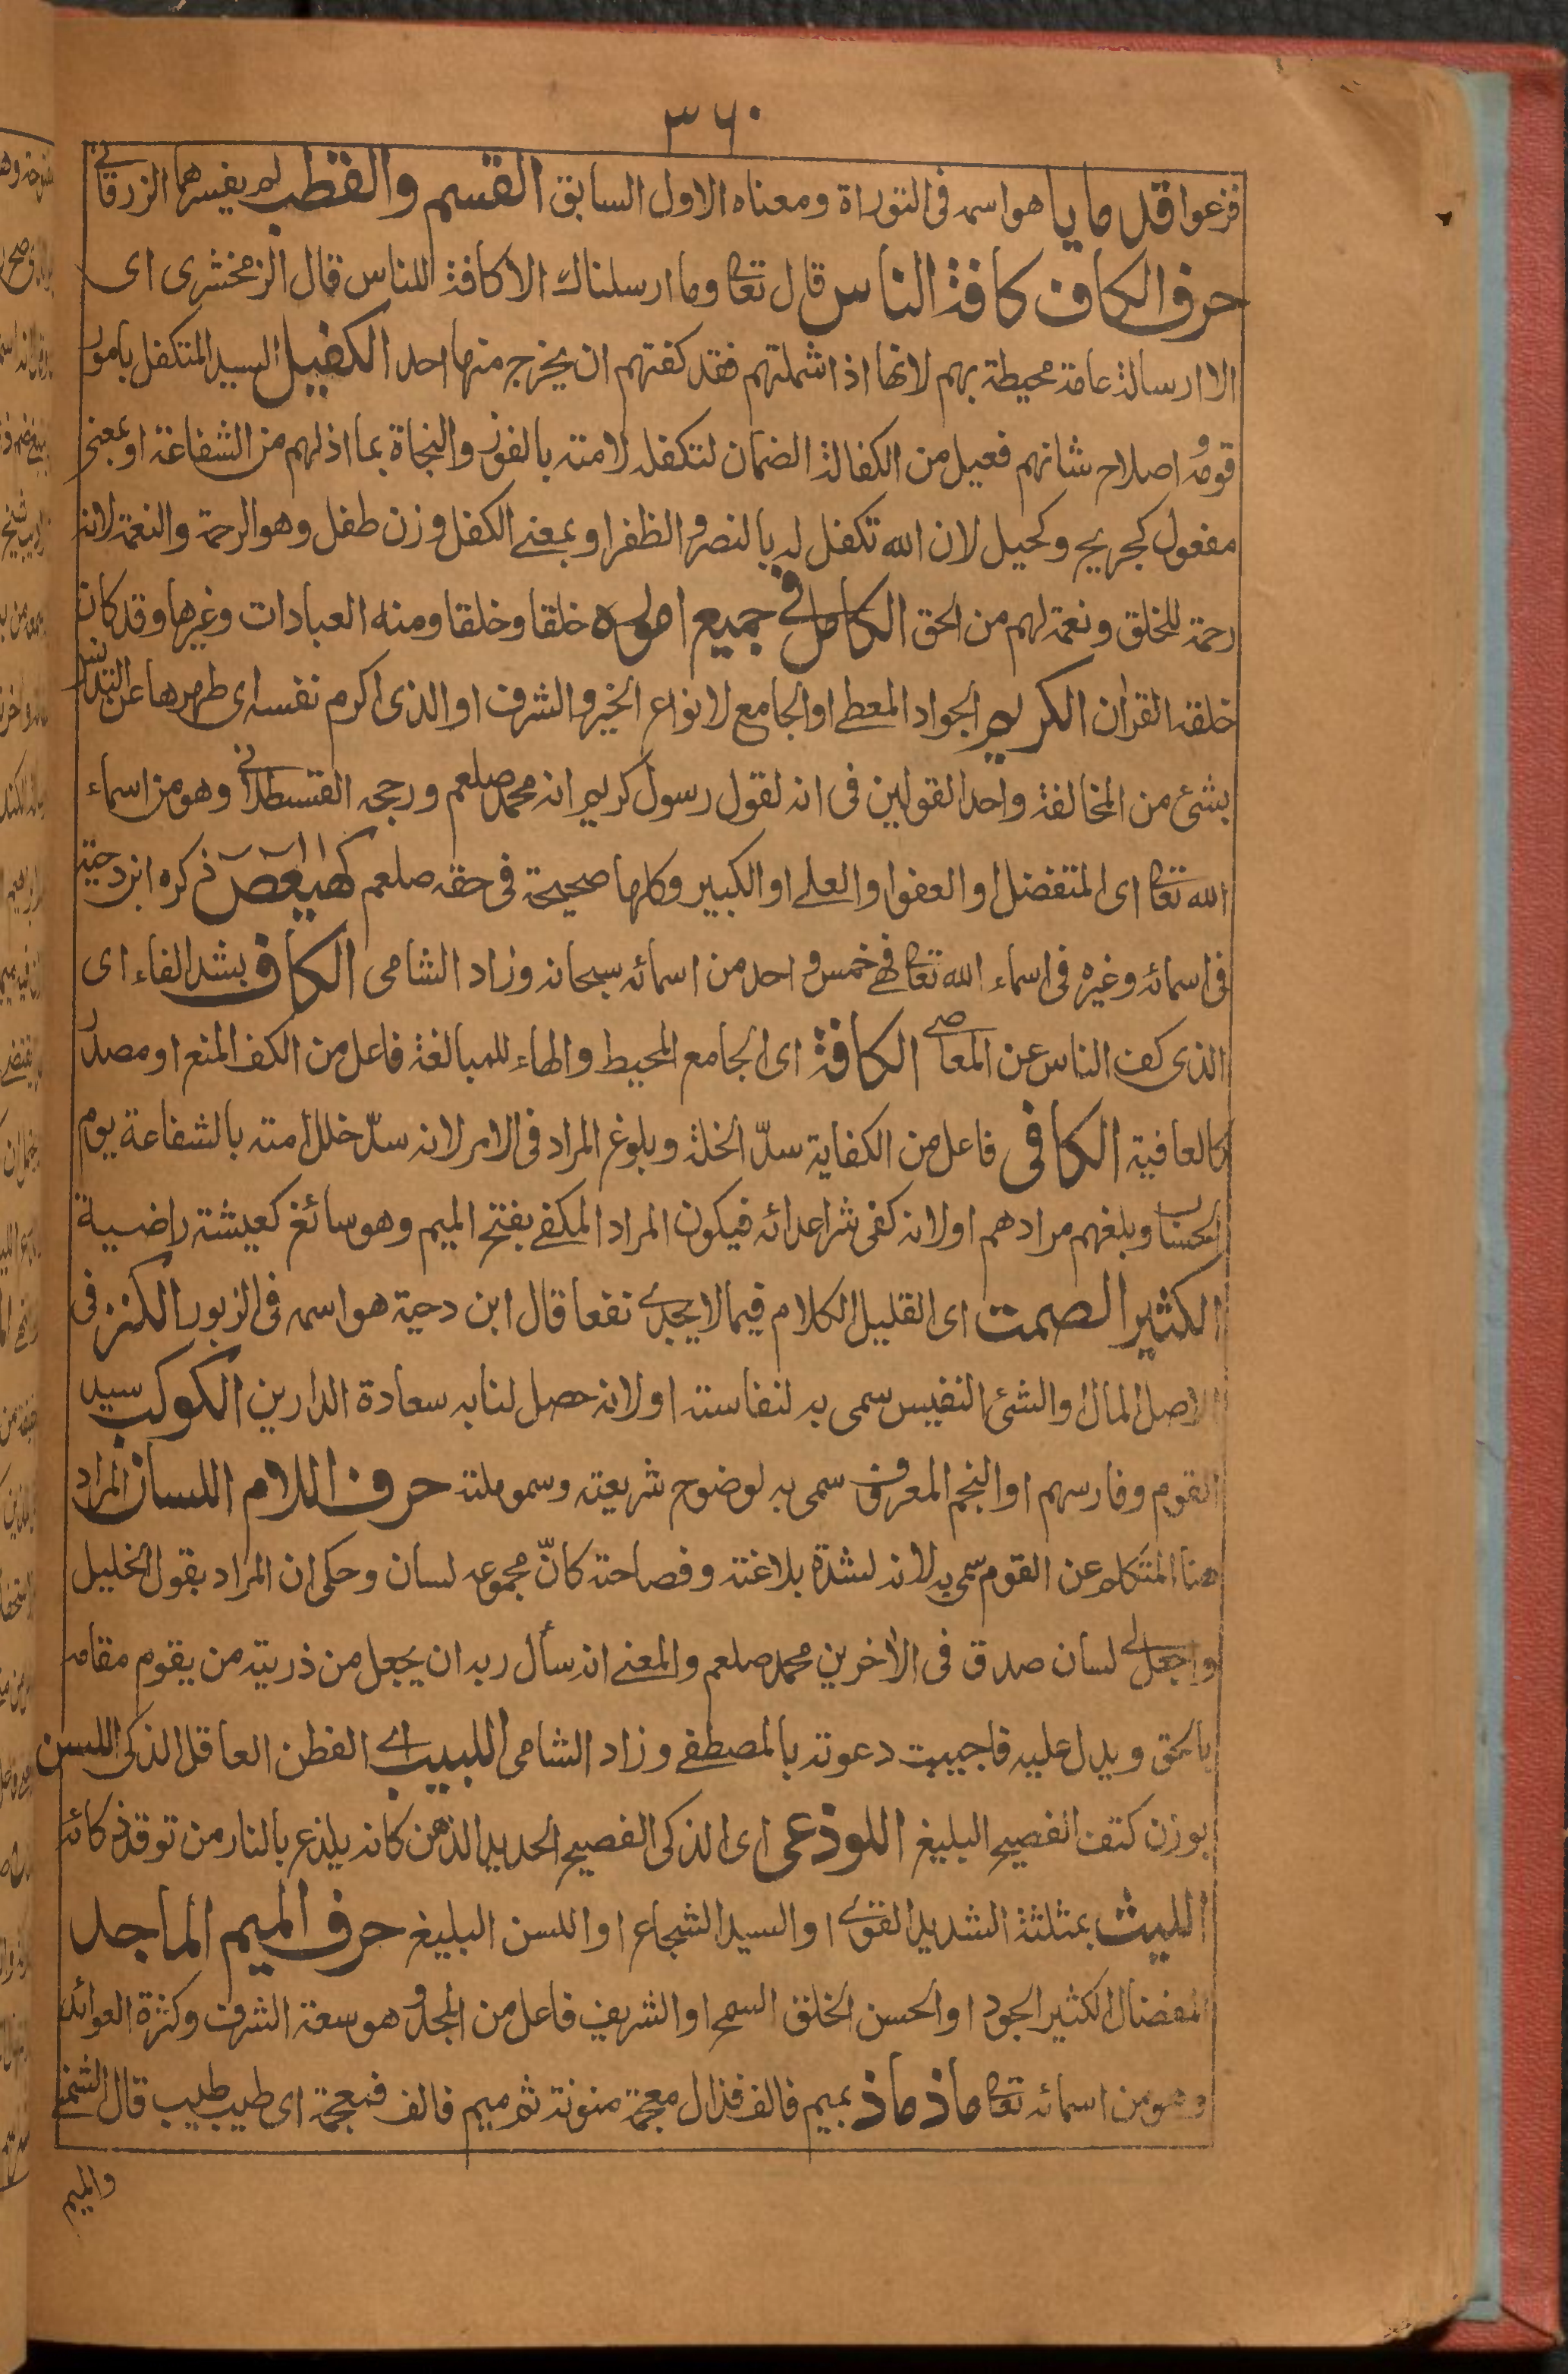 ٣٦٠
فزعوا قدمايا هو اسمه فى التوراة ومعناه الاول السابق القسم والقطب لم يفسرهما الزرقانے
حرف الكاف كافة الناس قال تعا وما ارسلناك الا كافة للناس قال الزمخشرى اى
الا ارسالة عامة محيطة بهم لانها اذا شملتهم فقد كفتهم ان يخرج منها احد الكفيل السيد المتكفل بامور
قومه و اصلاح شانهم فعيل من الكفالة الضمان لتكفله لامته بالفوز والنجاة بما اذ لهم من الشفاعة او بمعنى
مفعول كجريح وكحيل لان الله تكفل له بالنصر و الظفر او بمعنے الكفل وزن طفل وهو الرحمة والنعمة لانه
رحمة للخلق ونعمة لهم من الحق الكامل فى جميع اموره خلقا وخلقا ومنه العبادات وغيرها وقد كان
خلقه القران الكريم الجواد المعطے او الجامع لانواع الخير و الشرف او الذى اكرم نفسه اى طهرها عن التدنس
بشئ من المخالفة واحد القولين فى انه لقول رسول كريم انه محمد صلعم ورجحه القسطلانى وهو من اسماء
الله تعا اى المتفضل او العفو او العلے او الكبير وكلها صحيحة فى حقه صلعم كهيعص ذكره ابن دحية
فى اسمائه وغيره فى اسماء الله تعا فهے خمس و احد من اسمائه سبحانه وزاد الشامى الكاف بشد الفاء اى
الذى كف الناس عن المعاصے الكافة اى الجامع المحيط والهاء للمبالغة فاعل من الكف المنع او مصدر
كالعافية الكافى فاعل من الكفاية سدّ الخلة وبلوغ المراد فى الامر لانه سدّ خلل امته بالشفاعة يوم
الحساب وبلغهم مرادهم او لانه كفى شر اعدائه فيكون المراد المكفے بفتح الميم وهو سائغ كعيشة راضية
الكثير الصمت اى القليل الكلام فيما لا يجدے نفعا قال ابن دحية هو اسمه فى الزبور الكنز فى
الاصل المال او الشئ النفيس سمى به لنفاسته او لانه حصل لنا به سعادة الدارين الكوكب سيد
القوم وفارسهم او النجم المعروف سمى به لوضوح شريعته وسمو ملته حرف اللام اللسان المراد
هنا المتكلم عن القوم سمى به لانه لشدة بلاغته وفصاحته كانّ مجموعه لسان وحكى ان المراد بقول الخليل
واجعل لے لسان صدق فى الأخرين محمد صلعم والمعنے انه سأل ربه ان يجعل من ذريته من يقوم مقامه
بالحق ويدل عليه فاجيبت دعوته بالمصطفے وزاد الشامى اللبيب اے الفطن العاقل الذكى اللسن
بوزن كتف الفصيح البليغ اللوذعى اى الذكى الفصيح الحديد الذهن كانه يلذع بالنار من توقد ذكائه
الليث بمثلثة الشديد القوے او السيد الشجاع او اللسن البليغ حرف الميم الماجد
المفضال الكثير الجود او الحسن الخلق السمح او الشريف فاعل من المجد و هو سعة الشرف وكثرة العوائد
وهو من اسمائه تعا ماذ ماذ بميم فالف فذال معجمة منونة ثم ميم فالف فمعجمة اى طيب طيب قال الشخمے
والميم